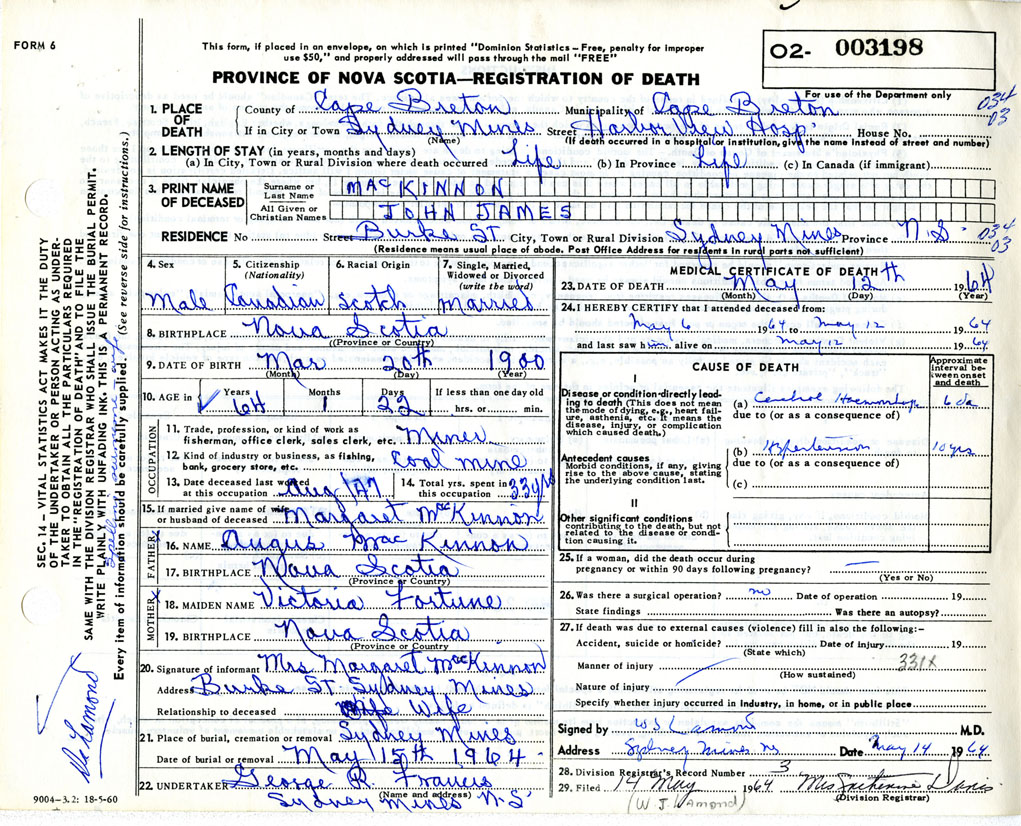 FORM 6
This form, if placed in an envelope, on which is printed "Dominion Statistics – Free, penalty for improper
use $50," and properly addressed will pass through the mail "FREE"
PROVINCE OF NOVA SCOTIA—REGISTRATION OF DEATH
02- 003198
For use of the Department only
SEC. 14 – VITAL STATISTICS ACT MAKES IT THE DUTY
OF THE UNDERTAKER OR PERSON ACTING AS UNDER-
TAKER TO OBTAIN ALL THE PARTICULARS REQUIRED
IN THE "REGISTRATION OF DEATH" AND TO FILE THE
SAME WITH THE DIVISION REGISTRAR WHO SHALL ISSUE THE BURIAL PERMIT.
WRITE PLAINLY WITH UNFADING INK. THIS IS A PERMANENT RECORD.
Every item of information should be carefully supplied. (See reverse side for instructions.)
1. PLACE OF DEATH
County of Cape Breton Municipality of Cape Breton
034
03
If in City or Town Sydney Mines Street Harbor View Hosp. House No.
(Name) (If death occurred in a hospital or institution, give the name instead of street and number)
2. LENGTH OF STAY (in years, months and days)
(a) In City, Town or Rural Division where death occurred Life (b) In Province Life (c) In Canada (if immigrant)
3. PRINT NAME OF DECEASED
Surname or Last Name MacKINNON
All Given or Christian Names JOHN JAMES
RESIDENCE No Street Burke St City, Town or Rural Division Sydney Mines Province N.S.
034
03
(Residence means usual place of abode. Post Office Address for residents in rural parts not sufficient)
4. Sex
Male
5. Citizenship
(Nationality)
Canadian
6. Racial Origin
Scotch
7. Single, Married,
Widowed or Divorced
(write the word)
Married
8. BIRTHPLACE Nova Scotia
(Province or Country)
9. DATE OF BIRTH Mar 20th 1900
(Month) (Day) (Year)
10. AGE in
Years Months Days If less than one day old
64 1 22 hrs. or min.
OCCUPATION
11. Trade, profession, or kind of work as
fisherman, office clerk, sales clerk, etc. Miner
12. Kind of industry or business, as fishing,
bank, grocery store, etc. Coal mine
13. Date deceased last worked
at this occupation Aug /47
14. Total yrs. spent in
this occupation 33 yrs
15. If married give name of wife
or husband of deceased Margaret MacKinnon
FATHER
16. NAME Angus MacKinnon
17. BIRTHPLACE Nova Scotia
(Province or Country)
MOTHER
18. MAIDEN NAME Victoria Fortune
19. BIRTHPLACE Nova Scotia
(Province or Country)
20. Signature of informant Mrs Margaret MacKinnon
Address Burke St. Sydney Mines
Relationship to deceased Wife
21. Place of burial, cremation or removal Sydney Mines
Date of burial or removal May 15th 1964
22. UNDERTAKER George R. Francis
(Name and address)
Sydney Mines N.S.
9004-3.2: 18-5-60
MEDICAL CERTIFICATE OF DEATH
23. DATE OF DEATH May 12th 1964
(Month) (Day) (Year)
24. I HEREBY CERTIFY that I attended deceased from:
May 6 1964, to May 12 1964
and last saw him alive on May 12 1964
CAUSE OF DEATH
Approximate
interval be-
tween onset
and death
I
Disease or condition directly lead-
ing to death (This does not mean
the mode of dying, e.g., heart fail-
ure, asthenia, etc. It means the
disease, injury, or complication
which caused death.)
(a) Cerebral Haemorrhage 6 da
due to (or as a consequence of)
Antecedent causes
Morbid conditions, if any, giving
rise to the above cause, stating
the underlying condition last.
(b) Hypertension 10 yrs
due to (or as a consequence of)
(c)
II
Other significant conditions
contributing to the death, but not
related to the disease or condi-
tion causing it.
25. If a woman, did the death occur during
pregnancy or within 90 days following pregnancy? —
(Yes or No)
26. Was there a surgical operation? no Date of operation 19
State findings Was there an autopsy?
27. If death was due to external causes (violence) fill in also the following:–
Accident, suicide or homicide? Date of injury 19
(State which)
331X
Manner of injury
(How sustained)
Nature of injury
Specify whether injury occurred in industry, in home, or in public place
Signed by W J Lamond M.D.
Address Sydney Mines NS Date May 14 1964
28. Division Registrar's Record Number 3
29. Filed 14 May 1964 Mrs Catherine Davis
(W J Lamond) (Division Registrar)